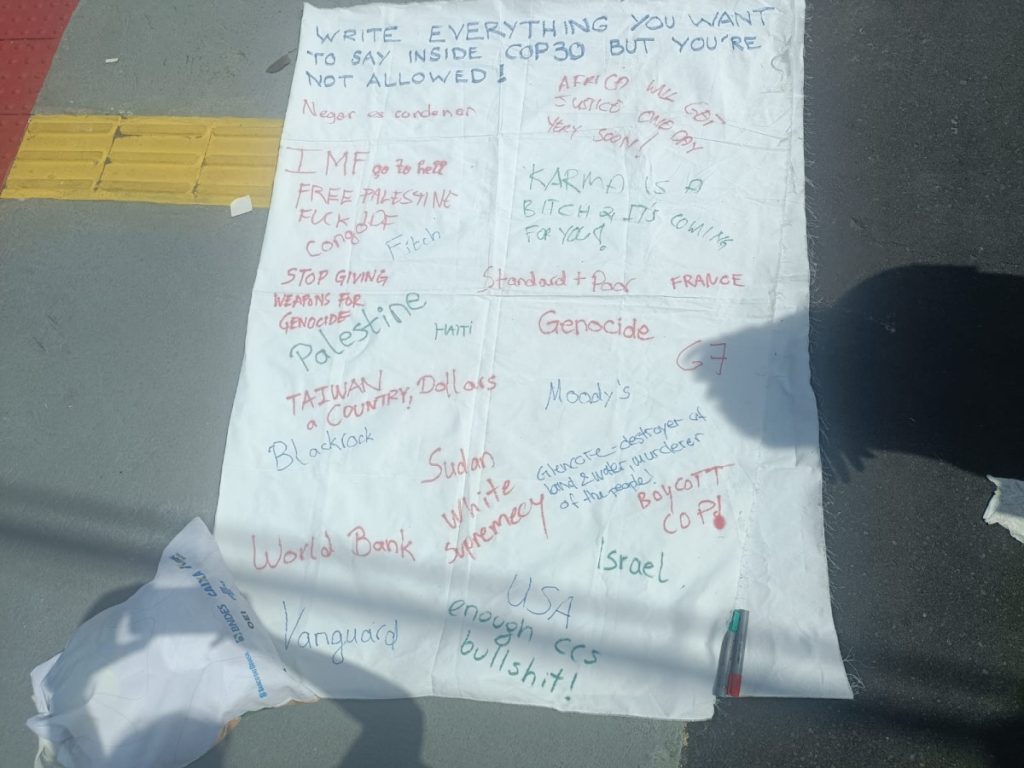 WRITE EVERYTHING YOU WANT
TO SAY INSIDE COP30 BUT YOU'RE
NOT ALLOWED!
Negar es condenar
AFRICA WILL GET
JUSTICE ONE DAY
VERY SOON!
IMF go to hell
FREE PALESTINE
FUCK IDF
Congo
Fitch
KARMA IS A
BITCH & IT'S COMING
FOR YOU!
STOP GIVING
WEAPONS FOR
GENOCIDE
Standard + Poor
FRANCE
Palestine
HAITI
Genocide
G7
TAIWAN
a COUNTRY, Dollars
Moody's
Blackrock
Sudan
Glencore - destroyer of
land & water, murderer
of the people!
White
Supremecy
BOYCOTT
COP!
World Bank
Israel
USA
Vanguard
enough CCS
bullshit!
BNDES CAIXA